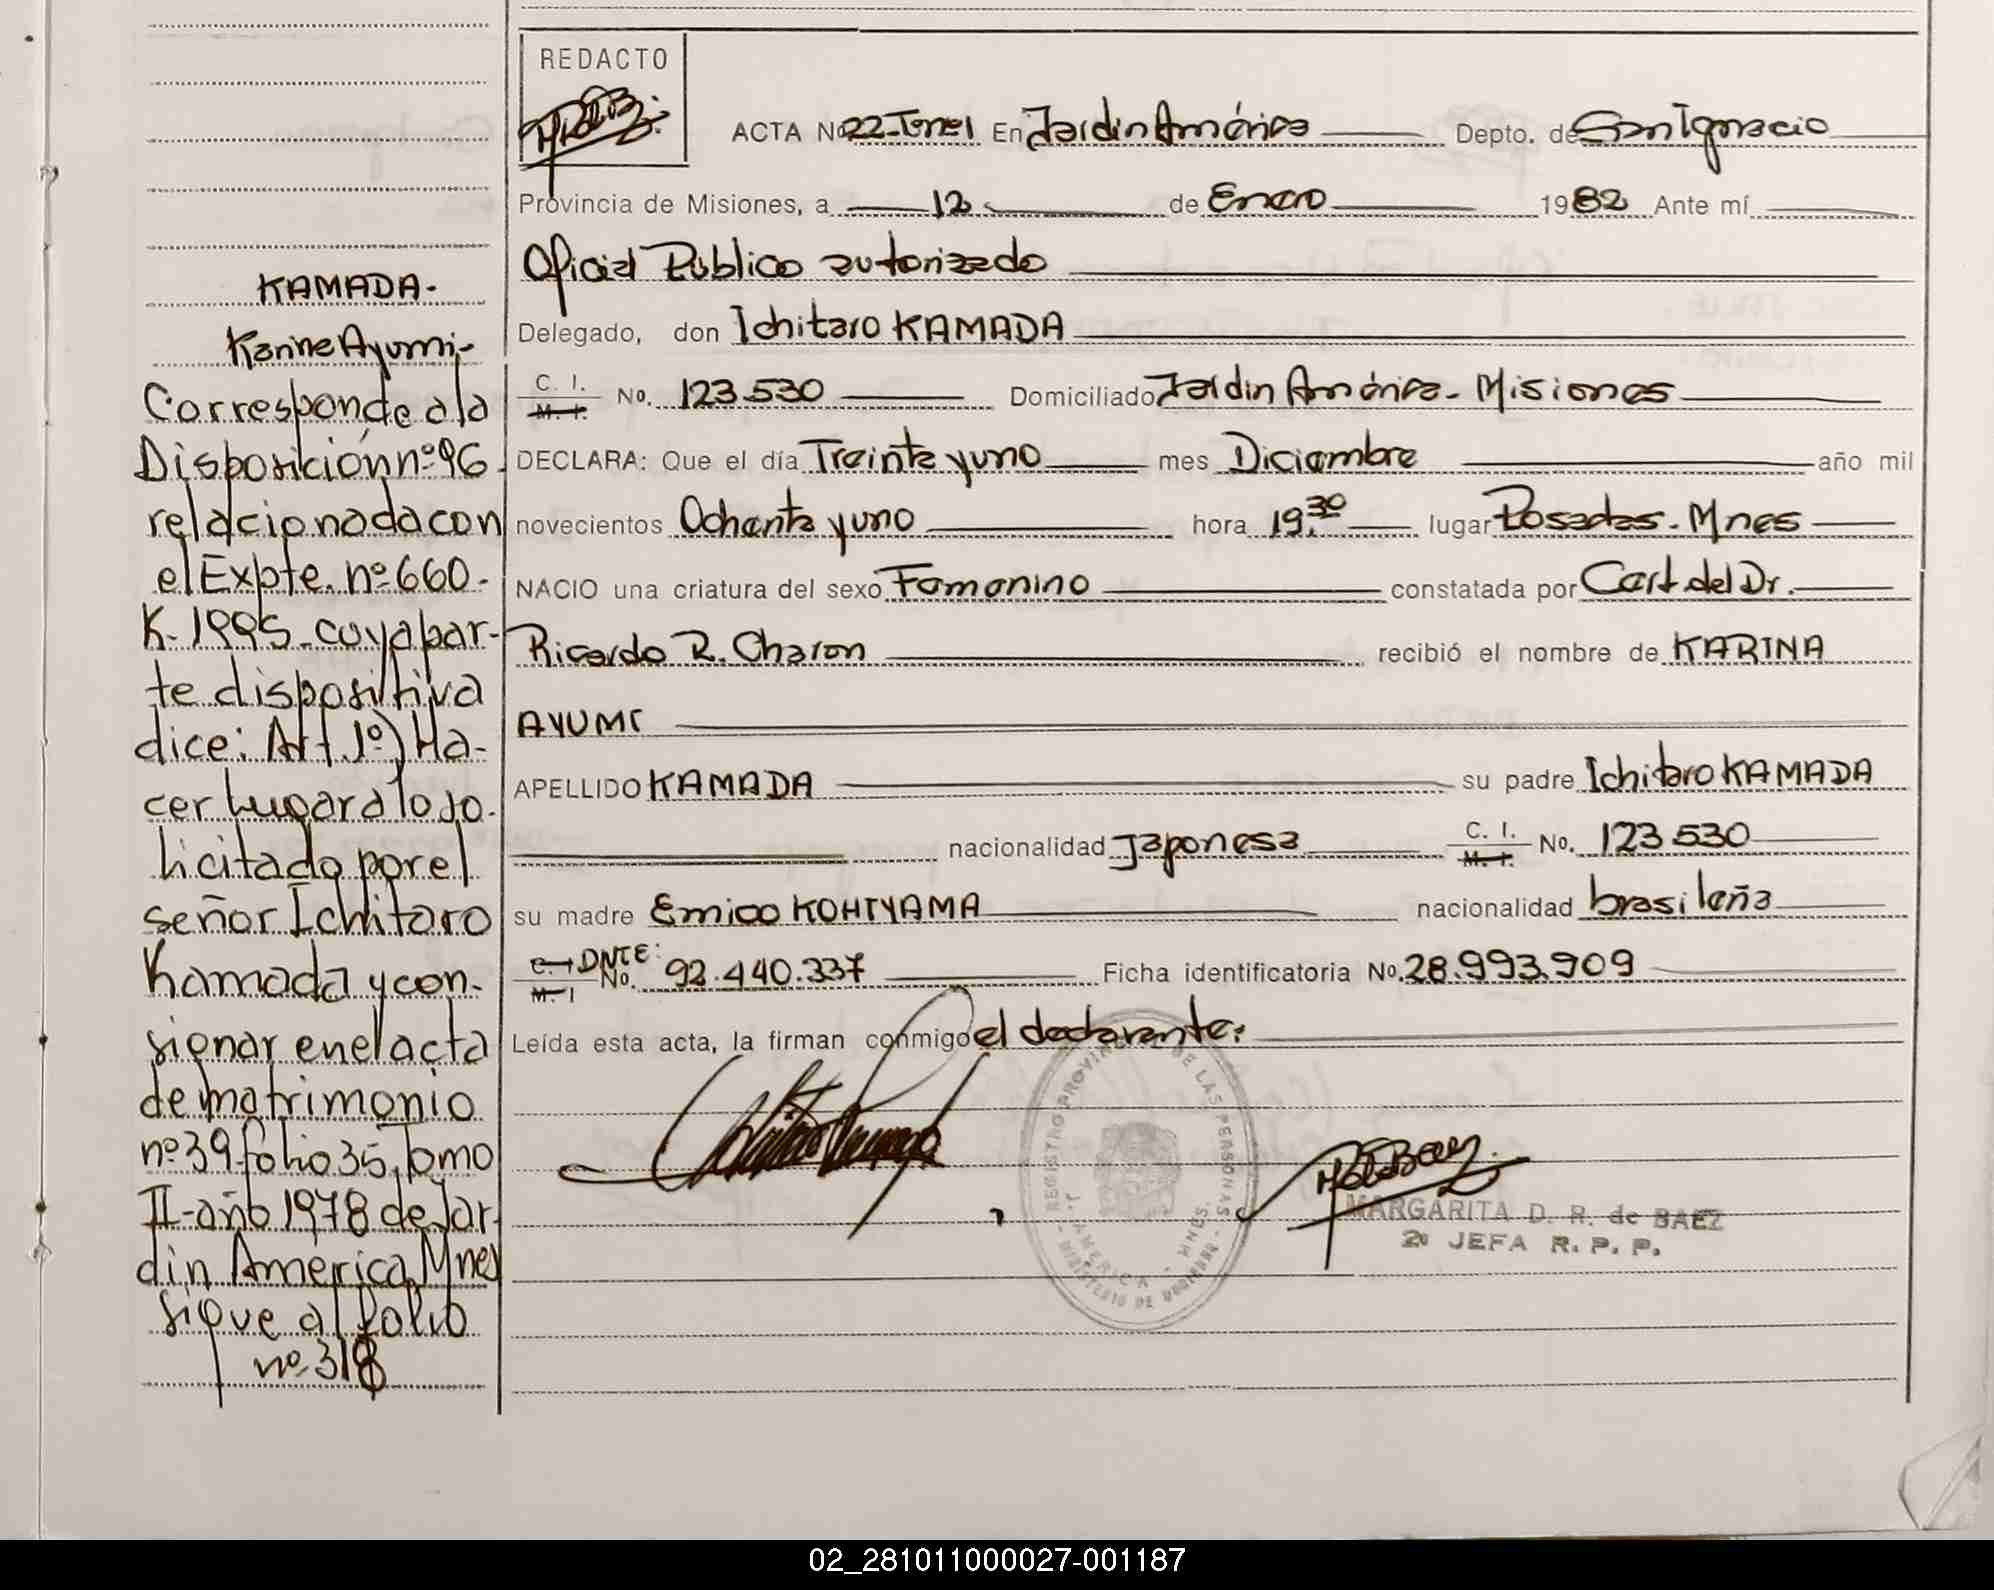 REDACTO
ACTA No 22-Tomo I En Jardin América Depto. de San Ignacio
Provincia de Misiones, a 12 de Enero 1982 Ante mí
Oficial Público autorizado
Delegado, don Ichitaro KAMADA
C. I. M. I. No. 123.530 Domiciliado Jardin América - Misiones
DECLARA: Que el día Treinta y uno mes Diciembre año mil
novecientos Ochenta y uno hora 19.30 lugar Posadas - Mnes
NACIO una criatura del sexo Femenino constatada por Cert. del Dr.
Ricardo R. Charon recibió el nombre de KARINA
AYUMI
APELLIDO KAMADA su padre Ichitaro KAMADA
nacionalidad Japonesa C. I. M. I. No. 123.530
su madre Emico KOHIYAMA nacionalidad brasileña
C. I. M. I DNIE: No. 92.440.337 Ficha identificatoria No. 28.993.909
Leída esta acta, la firman conmigo el declarante:
REGISTRO PROVINCIAL DE LAS PERSONAS
J. AMERICA - MNES.
MINISTERIO DE GOBIERNO
MARGARITA D. R. de BAEZ
2º JEFA R. P. P.
KAMADA.
Karina Ayumi-
Corresponde a la
Disposición nº 96
relacionada con
el Expte. nº 660-
K-1995. cuya par-
te dispositiva
dice: Art. 1º) Ha-
cer lugar a lo so-
licitado por el
señor Ichitaro
Kamada y con-
signar en el acta
de matrimonio
nº 39 folio 35, Tomo
II-año 1978 de Jar-
din América, Mnes
sigue al folio
nº 318
02_281011000027-001187